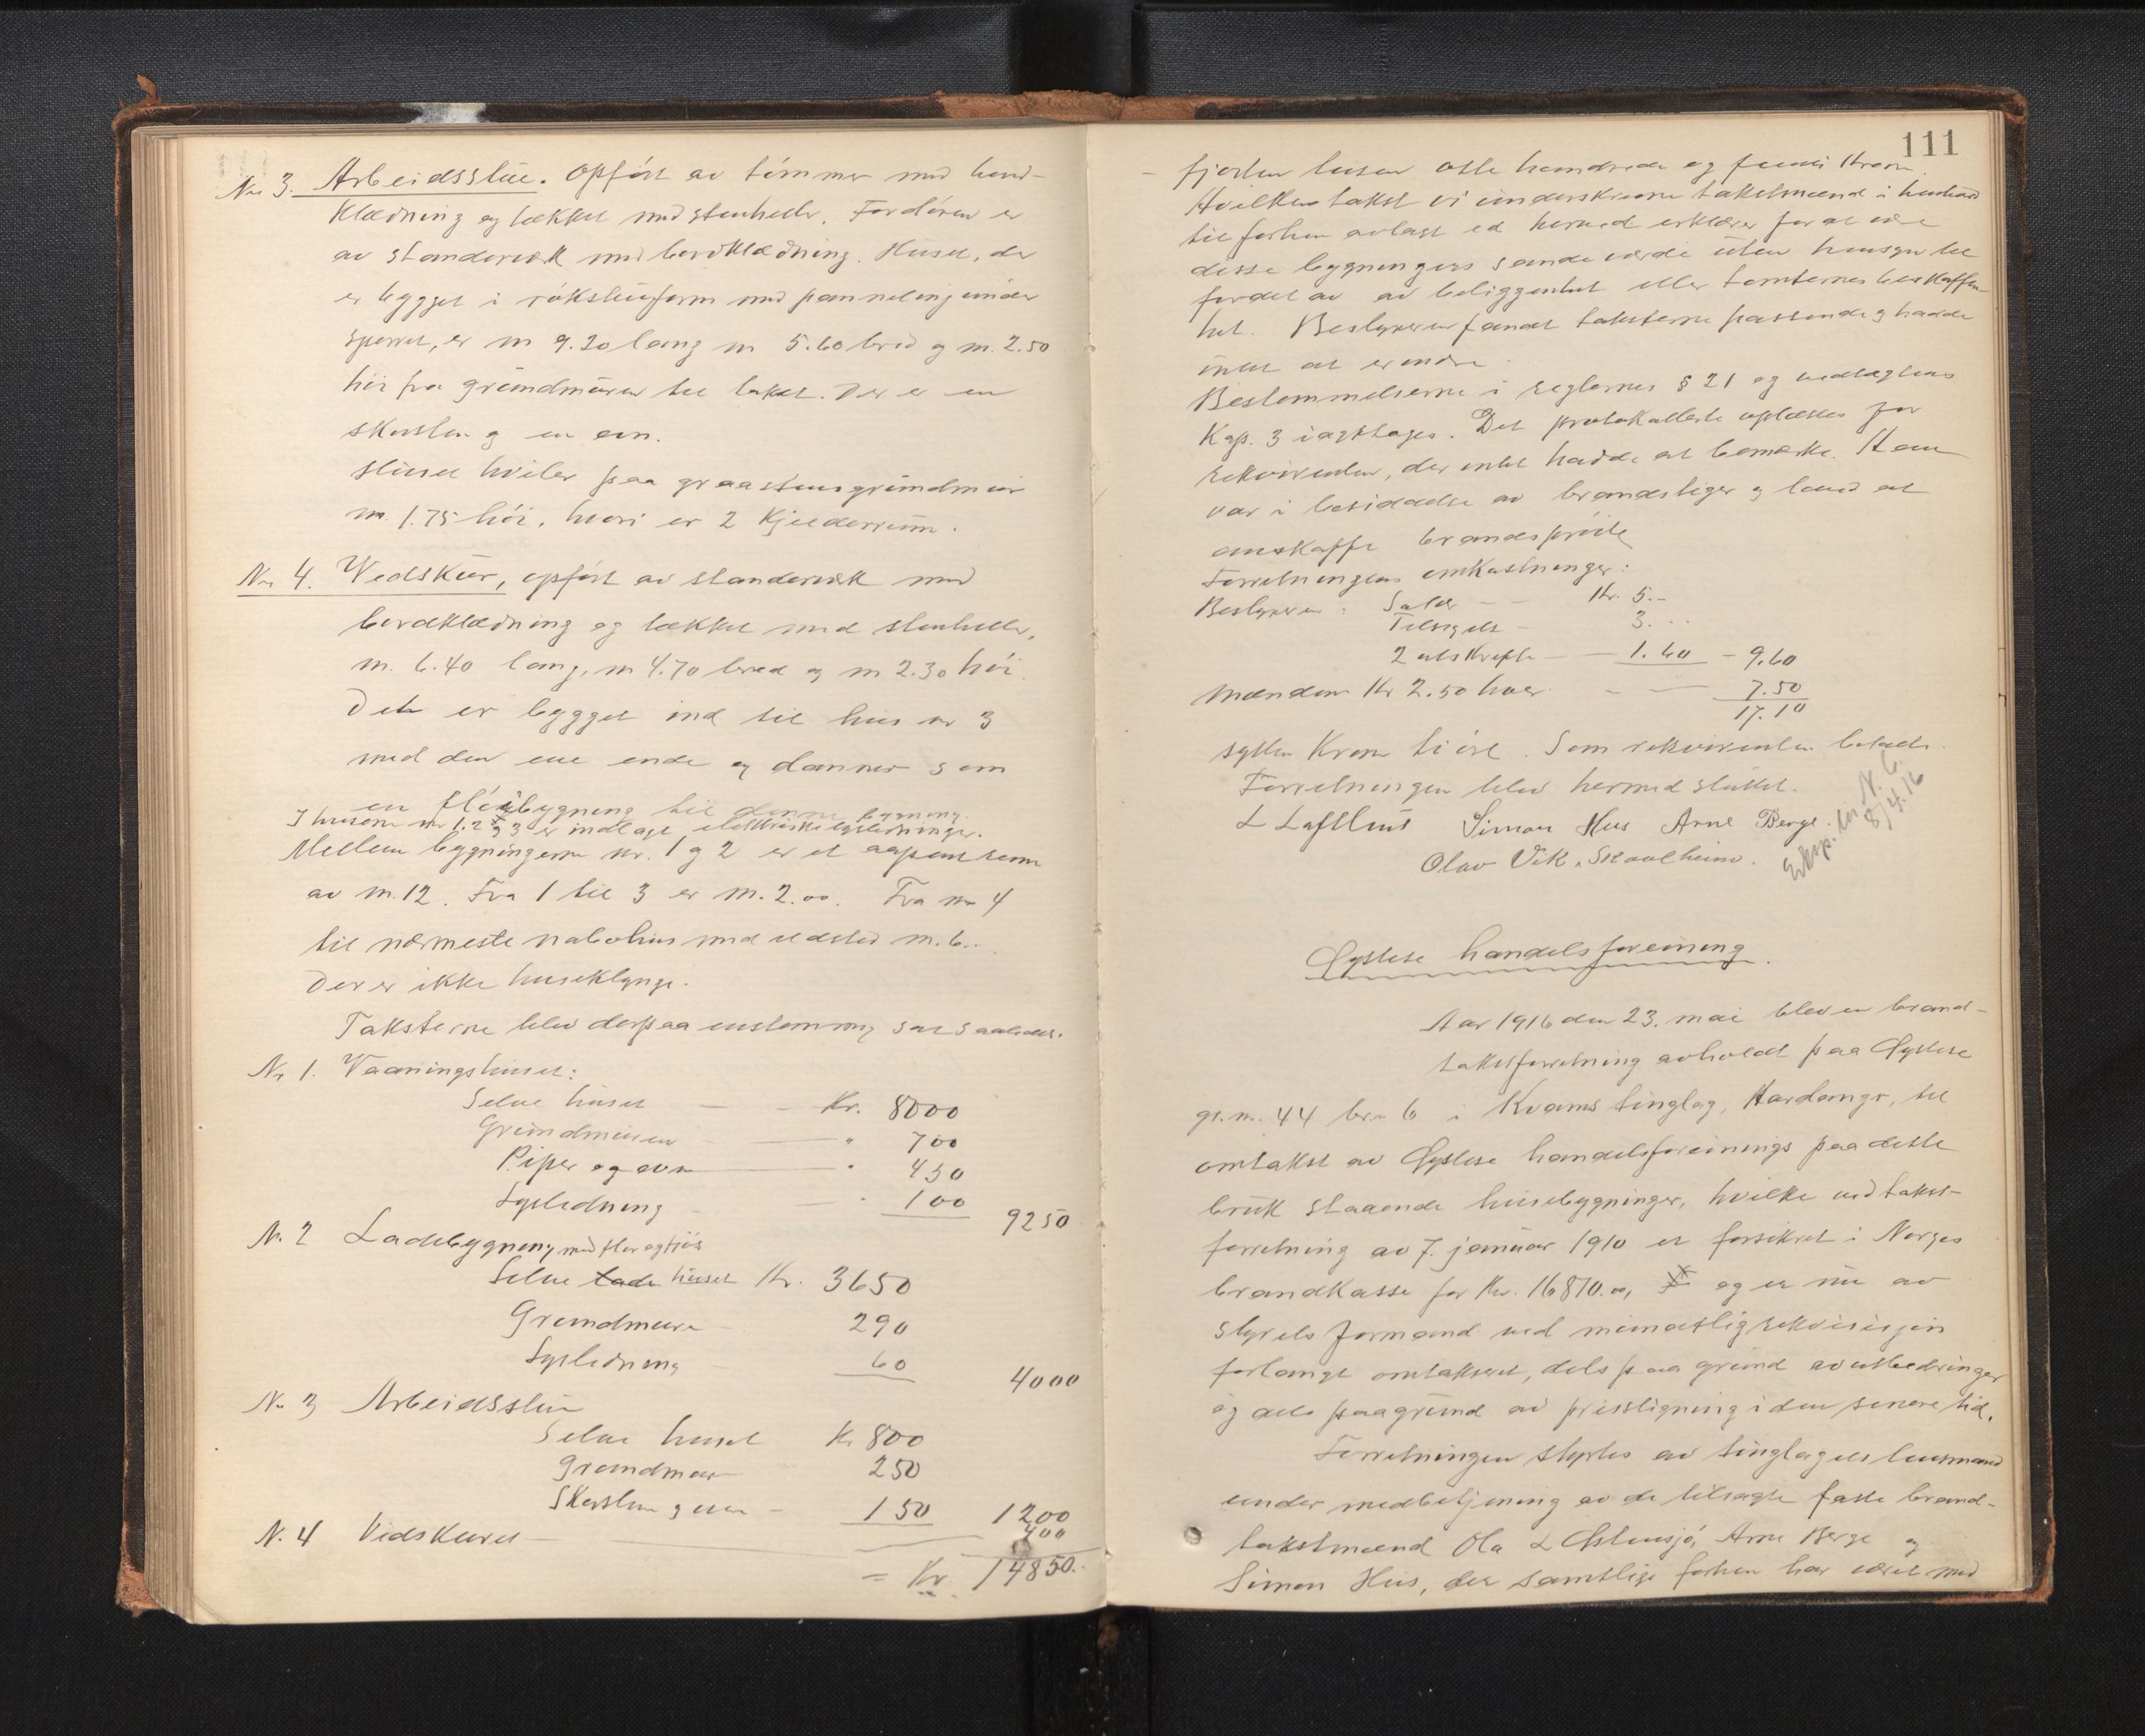 Nr 3. Arbeidsstue. Opført av tømmer med bord-
klædning og tækket med stenheller. Fordøren er
av standerverk med bordklædning. Huset, der
er bygget i røkstueform med panneling under
sperret, er m 9.20 lang m 5.60 bred og m. 2.50
høi fra grundmuren til taket. Der er en
skorsten og en ovn.
Stuen hviler paa graastensgrundmur
m. 1.75 høi, hvori er 2 kjelderrum.
Nr 4. Vedskur, opført av standerverk med
bordklædning og tækket med stenheller,
m. 6.40 lang, m 4.70 bred og m 2.30 høi.
Det er bygget ind til hus nr 3
med den ene ende og danner som
en fløibygning til denne bygning.
I husene nr 1, 2 og 3 er indlagt elektriske lysledninger.
Mellem bygningerne nr. 1 og 2 er et aapent rum
av m. 12. Fra 1 til 3 er m. 2.00. Fra nr 4
til nærmeste nabohus med ildsted m. 6..
Der er ikke huseklynge.
Taksterne blev derpaa enstemmig sat saaledes.
Nr 1. Vaaningshuset:
Selve huset — - Kr. 8000
Grundmuren — " 700
Piper og ovn — " 450
Lysledning — " 100 9250
Nr. 2 Ladebygning med flor og fjøs
Selve lade huset Kr. 3650
Grundmuren 290
Lysledning 60 4000
Nr 3 Arbeidsstuen
Selve huset Kr 800
Grundmur 250
Skorsten og ovn - 150 1200
N. 4 Vedskuret — 400
= Kr 14850.-
111
- fjorten tusen otte hundrede og femti kroner
Hvilken takst vi underskrevne takstmænd i henhold
til forhen avlagt ed herved erklærer for at være
disse bygningers sande værdi uten hensyn til
fordel av av beliggenhet eller tomternes beskaffen-
het. Bestyreren fandt taksterne passende og hadde
intet at erindre.
Bestemmelserne i reglernes § 21 og vedtægtens
Kap. 3 iagttages. Det protokollerte oplæstes for
rekvirenten, der intet hadde at bemærke. Han
var i besiddelse av brandstiger og loved at
anskaffe brandsprøite
Forretningens omkostninger:
Bestyreren: Salær — Kr. 5.-
Tilsigelse — 3. ..
2 utskrifter — 1.60 - 9.60
Mændene Kr 2.50 hver. - — 7.50
17.10
sytten kroner ti øre. Som rekvirenten betalte.
Forretningen blev hermed sluttet.
L Lofthus Simon Hus Arne Berge.
Olav Vik, Skaalheim.
Eksp. til N. B. 8/4.16
Øystese handelsforeining.
Aar 1916 den 23. mai blev en brand-
takstforretning avholdt paa Øystese
gr.nr. 44 br.nr 6 i Kvams tinglag, Hardanger, til
omtakst av Øystese handelsforeinings paa dette
bruk staaende husebygninger, hvilke ved takst-
forretning av 7. januar 1910 er forsikret i Norges
brandkasse for Kr. 16870.00, og er nu av
styrets formand ved mundtlig rekvisisjon
forlangt omtaksert, dels paa grund av utbedringer
og dels paa grund av prisstigning i den senere tid.
Forretningen styrtes av tinglagets lensmand
under medbetjening av de tilsagte faste brand-
takstmænd Ola L Østensjø, Arne Berge og
Simon Hus, der samtlige forhen har været med